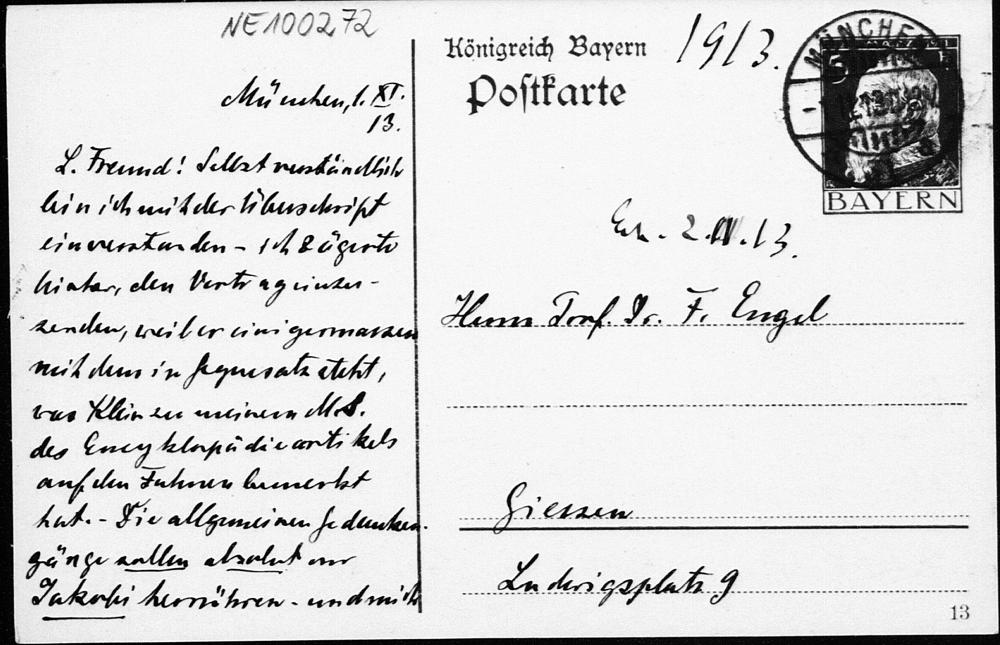 NE100272
München, 1. XI.
13.
L. Freund! Selbstverständlich
bin ich mit der Überschrift
einverstanden – ich zögerte
bisher, den Vertrag einzu-
senden, weil er einigermassen
mit dem in Gegensatz steht,
was Klein zu meinem M.S.
des Encyklopädieartikels
auf den Fahnen bemerkt
hat. – Die allgemeinen Gedanken-
gänge sollen absolut von
Jakobi herrühren – und nicht
Königreich Bayern
Postkarte
1913.
MÜNCHEN
5
BAYERN
2. 11. 13.
Herrn Prof. Dr. F. Engel
Giessen
Ludwigsplatz 9
13